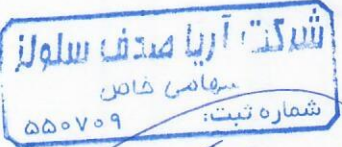 شرکت آریا صدف سلولز
سهامی خاص
شماره ثبت: ۵۵۰۷۰۹